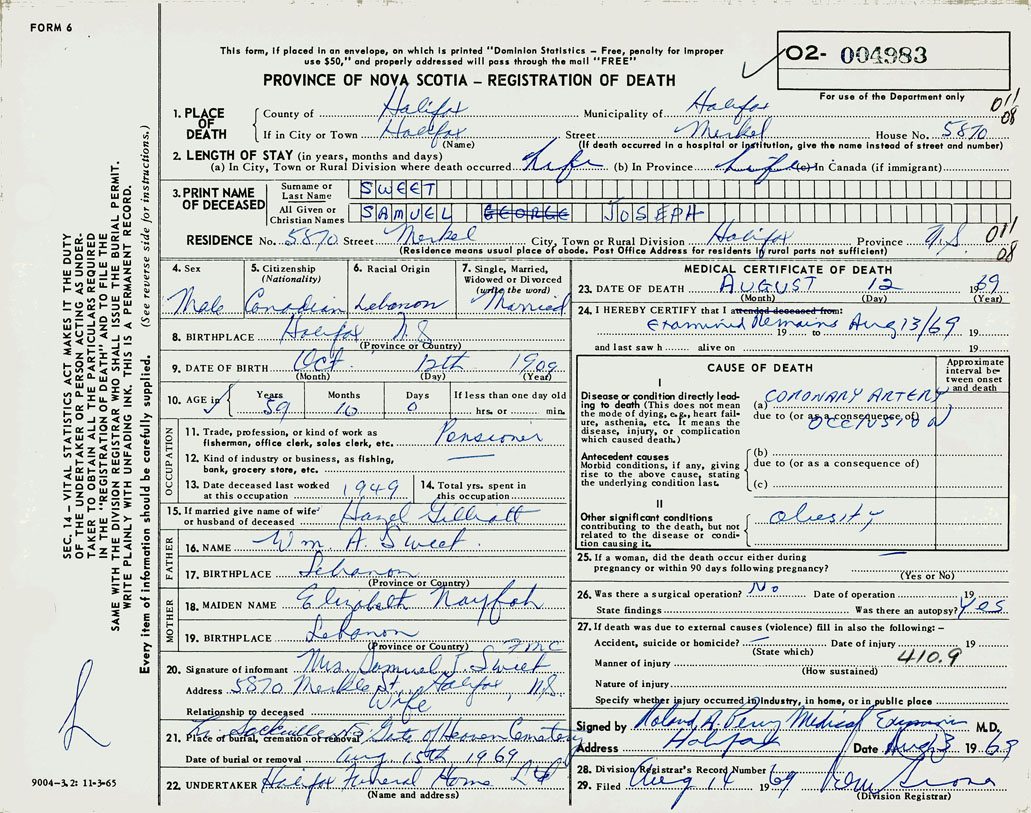 FORM 6
This form, if placed in an envelope, on which is printed "Dominion Statistics – Free, penalty for improper
use $50," and properly addressed will pass through the mail "FREE"
PROVINCE OF NOVA SCOTIA – REGISTRATION OF DEATH
O2- 004983
For use of the Department only
011
08
1. PLACE OF DEATH
County of Halifax Municipality of Halifax
If in City or Town Halifax Street Merkel House No. 5870
(Name) (If death occurred in a hospital or institution, give the name instead of street and number)
2. LENGTH OF STAY (in years, months and days)
(a) In City, Town or Rural Division where death occurred Life (b) In Province Life (c) In Canada (if immigrant)
3. PRINT NAME OF DECEASED
Surname or Last Name SWEET
All Given or Christian Names SAMUEL GEORGE JOSEPH
RESIDENCE No. 5870 Street Merkel City, Town or Rural Division Halifax Province N.S. 011
08
(Residence means usual place of abode. Post Office Address for residents if rural parts not sufficient)
4. Sex
Male
5. Citizenship
(Nationality)
Canadian
6. Racial Origin
Lebanon
7. Single, Married,
Widowed or Divorced
(write the word)
Married
8. BIRTHPLACE Halifax N.S
(Province or Country)
9. DATE OF BIRTH Oct 12th 1909
(Month) (Day) (Year)
10. AGE in Years Months Days If less than one day old
59 10 0 hrs. or min.
OCCUPATION
11. Trade, profession, or kind of work as
fisherman, office clerk, sales clerk, etc. Pensioner
12. Kind of industry or business, as fishing,
bank, grocery store, etc.
13. Date deceased last worked
at this occupation 1949
14. Total yrs. spent in
this occupation
15. If married give name of wife
or husband of deceased Hazel Gilliatt
FATHER
16. NAME Wm. A. Sweet
17. BIRTHPLACE Lebanon
(Province or Country)
MOTHER
18. MAIDEN NAME Elizabeth Nayfah
19. BIRTHPLACE Lebanon
(Province or Country)
20. Signature of informant Mrs. Samuel J. Sweet
Address 5870 Merkle St. Halifax, N.S.
Relationship to deceased Wife
21. Place of burial, cremation or removal Sackville Gate of Heaven Cemetary
Date of burial or removal Aug. 15th 1969
22. UNDERTAKER Halifax Funeral Home Ltd
(Name and address)
MEDICAL CERTIFICATE OF DEATH
23. DATE OF DEATH AUGUST 12 1969
(Month) (Day) (Year)
24. I HEREBY CERTIFY that I attended deceased from:
Examined Remains Aug 13/69
19 to 19
and last saw h alive on 19
CAUSE OF DEATH
Approximate
interval be-
tween onset
and death
I
Disease or condition directly lead-
ing to death (This does not mean
the mode of dying, e.g., heart fail-
ure, asthenia, etc. It means the
disease, injury, or complication
which caused death.)
(a) CORONARY ARTERY
due to (or as a consequence of)
OCCLUSION
Antecedent causes
Morbid conditions, if any, giving
rise to the above cause, stating
the underlying condition last.
(b)
due to (or as a consequence of)
(c)
II
Other significant conditions
contributing to the death, but not
related to the disease or condi-
tion causing it.
Obesity
25. If a woman, did the death occur either during
pregnancy or within 90 days following pregnancy?
(Yes or No)
26. Was there a surgical operation? No Date of operation 19
State findings Was there an autopsy? Yes
27. If death was due to external causes (violence) fill in also the following:–
Accident, suicide or homicide? Date of injury 19
(State which)
410.9
Manner of injury
(How sustained)
Nature of injury
Specify whether injury occurred in industry, in home, or in public place
Signed by Roland A. Perry Medical Examiner M.D.
Address Halifax Date Aug 13 1969
28. Division Registrar's Record Number
29. Filed Aug 14 1969
(Division Registrar)
SEC. 14 – VITAL STATISTICS ACT MAKES IT THE DUTY
OF THE UNDERTAKER OR PERSON ACTING AS UNDER-
TAKER TO OBTAIN ALL THE PARTICULARS REQUIRED
IN THE "REGISTRATION OF DEATH" AND TO FILE THE
SAME WITH THE DIVISION REGISTRAR WHO SHALL ISSUE THE BURIAL PERMIT.
WRITE PLAINLY WITH UNFADING INK. THIS IS A PERMANENT RECORD.
Every item of information should be carefully supplied. (See reverse side for instructions.)
9004–3.2: 11-3-65